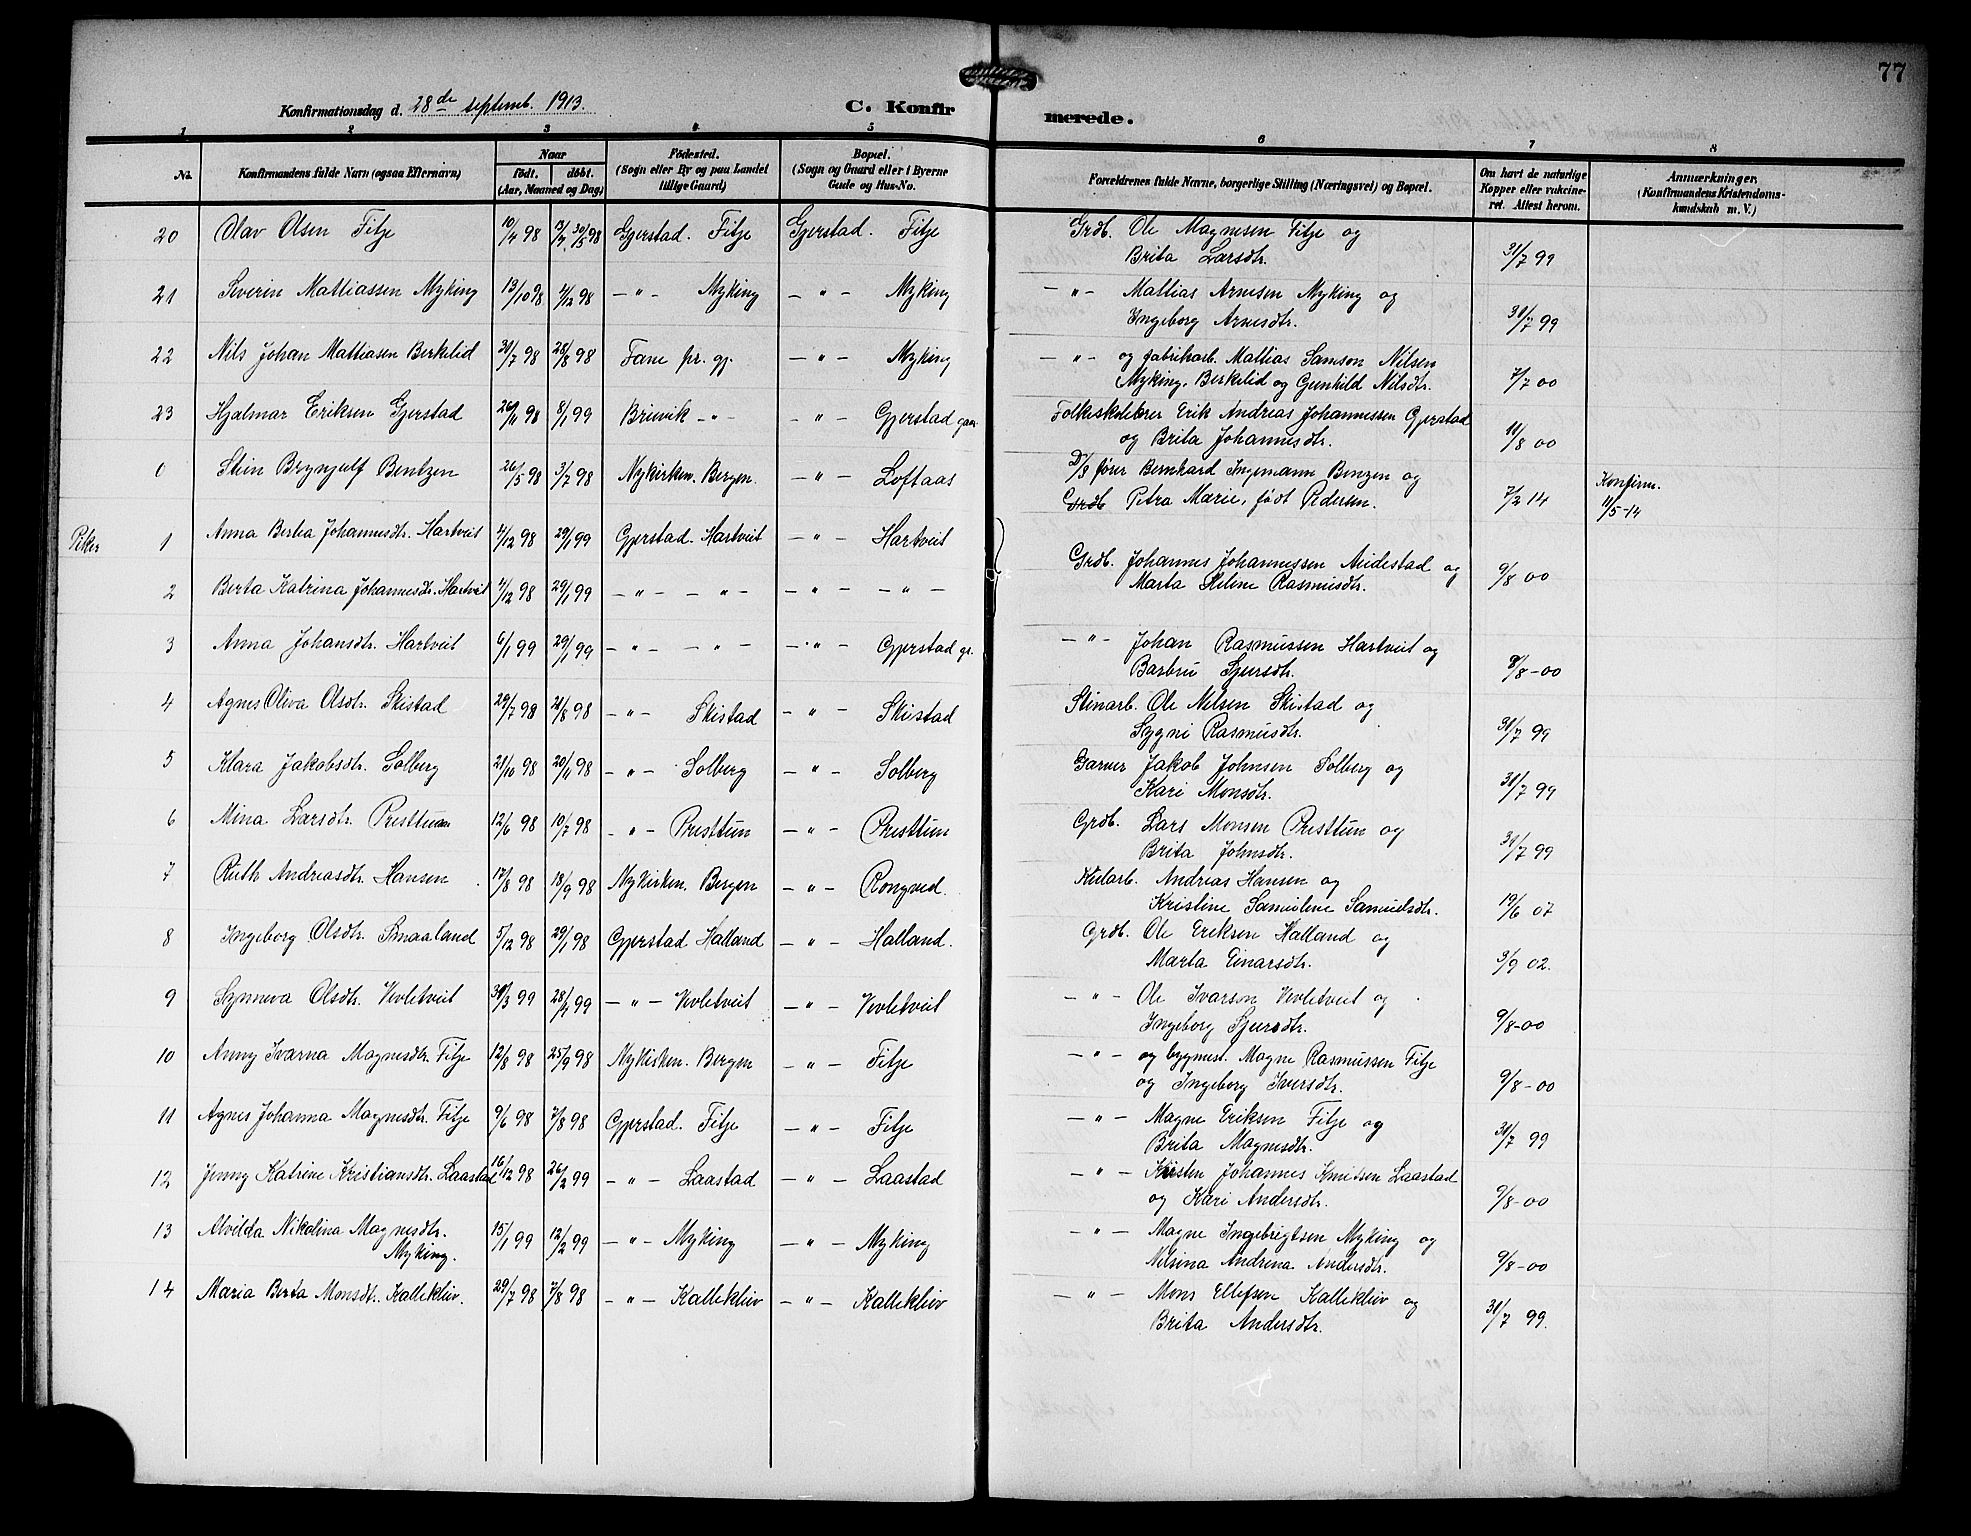 77
Konfirmationsdag d. 28de septemb. 1913.
C. Konfirmerede.
1 2 3 4 5 6 7 8
No. Konfirmandens fulde Navn (ogsaa Efternavn) Naar födt. döbt. (Aar, Maaned og Dag) Födested. (Sogn eller By og paa Landet tillige Gaard) Bopæl. (Sogn og Gaard eller i Byerne Gade og Hus-No. Forældrenes fulde Navne, borgerlige Stilling (Næringsvei) og Bopæl. Om havt de naturlige Kopper eller vakcineret. Attest herom. Anmærkninger, (Konfirmandens Kristendomskundskab m. V.)
20 Olav Olsen Fitje 10/4 98 13/4, 30/5 98 Gjerstad. Fitje Gjerstad. Fitje Grdb. Ole Magnesen Fitje og
Brita Larsdtr. 31/7 99
21 Severin Mattiassen Myking 13/10 98 4/12 98 - " - Myking - " - Myking - " - Mattias Arnesen Myking og
Ingeborg Arnesdtr. 31/7 99
22 Nils Johan Mattiasen Berkelid 30/7 98 28/8 98 Fane pr. gj. - " - Myking - " - og fabrikarb. Mattias Samson Nilsen
Myking, Berkelid og Gunhild Nilsdtr. 7/7 00
23 Hjalmar Eriksen Gjerstad 26/11 98 8/1 99 Bruvik - " - - " - Gjerstad gaar Folkeskolelærer Erik Andreas Johannessen Gjerstad
og Brita Johannesdtr. 11/8 00
0 Stein Brynjulf Bentzen 26/5 98 3/7 98 Nykirken. Bergen. - " - Loftaas D/S fører Bernhard Ingemann Benzen og
Grdb Petra Marie, født Pedersen. 7/2 14 Konfirm.
11/5-14
Piker 1 Anna Bertea Johannesdtr. Hartveit 4/12 98 29/1 99 Gjerstad. Hartveit - " - Hartveit Grdb. Johannes Johannessen Midestad og
Marta Helene Rasmusdtr. 9/8 00
2 Berta Katrina Johannesdtr. Hartveit 4/12 98 29/1 99 - " - - " - - " - - " -
3 Anna Johansdtr. Hartveit 6/1 99 29/1 99 - " - - " - - " - Gjerstad gr. - " - Johan Rasmussen Hartveit og
Barbru Sjursdtr. 8/8-00
4 Agnes Oliva Olsdtr. Skistad 29/7 98 21/8 98 - " - Skistad - " - Skistad Stinarb. Ole Nilsen Skistad og
Sygni Rasmusdtr. 31/7 99
5 Klara Jakobsdtr. Solberg 21/10 98 20/11 98 - " - Solberg - " - Solberg Garver Jakob Johnsen Solberg og
Kari Monsdtr. 31/7 99
6 Mina Larsdtr. Presttun 12/6 98 10/7 98 - " - Presttun - " - Presttun Grdb. Lars Monsen Presttun og
Brita Johnsdtr. 31/7 99
7 Ruth Andreasdtr. Hansen 17/8 98 18/9 98 Nykirken. Bergen - " - Rongved. Kularb. Andreas Hansen og
Kristine Samuelene Samuelsdtr. 19/6 07
8 Ingeborg Olsdtr. Smaaland 5/12 98 29/1 98 Gjerstad Halland - " - Halland. Grdb. Ole Eriksen Halland og
Marta Einarsdtr. 3/9 02.
9 Synneva Olsdtr. Vevletveit 30/3 99 28/4 99 - " - Vevletveit - " - Vevletveit - " - Ole Ivarson Vevletveit og
Ingeborg Sjursdtr. 9/8-00
10 Anny Ivarna Magnesdtr. Fitje 12/8 98 25/9 98 Nykirken. Bergen - " - Fitje - " - og bygmest. Magne Rasmussen Fitje
og Ingeborg Iversdtr. 9/8-00
11 Agnes Johanna Magnesdtr. Fitje 9/6 98 7/8 98 Gjerstad. Fitje - " - Fitje - " - Magne Eriksen Fitje og
Brita Magnesdtr. 31/7 99
12 Jenny Katrine Kristiansdtr. Laastad 16/12 98 26/2 99 - " - Laastad - " - Laastad - " - Kristen Johannes Knudsen Laastad
og Kari Andersdtr. 9/8-00
13 Alvilda Nikolina Magnesdtr. Myking. 15/1 99 12/2 99 - " - Myking - " - Myking - " - Magne Ingebrigtsen Myking og
Nilsina Andrina Andersdtr. 9/8-00
14 Maria Berta Monsdtr. Kallekleiv. 29/7 98 7/8 98 - " - Kallekleiv - " - Kallekleiv - " - Mons Ellefsen Kallekleiv og
Brita Andersdtr. 31/7 99.